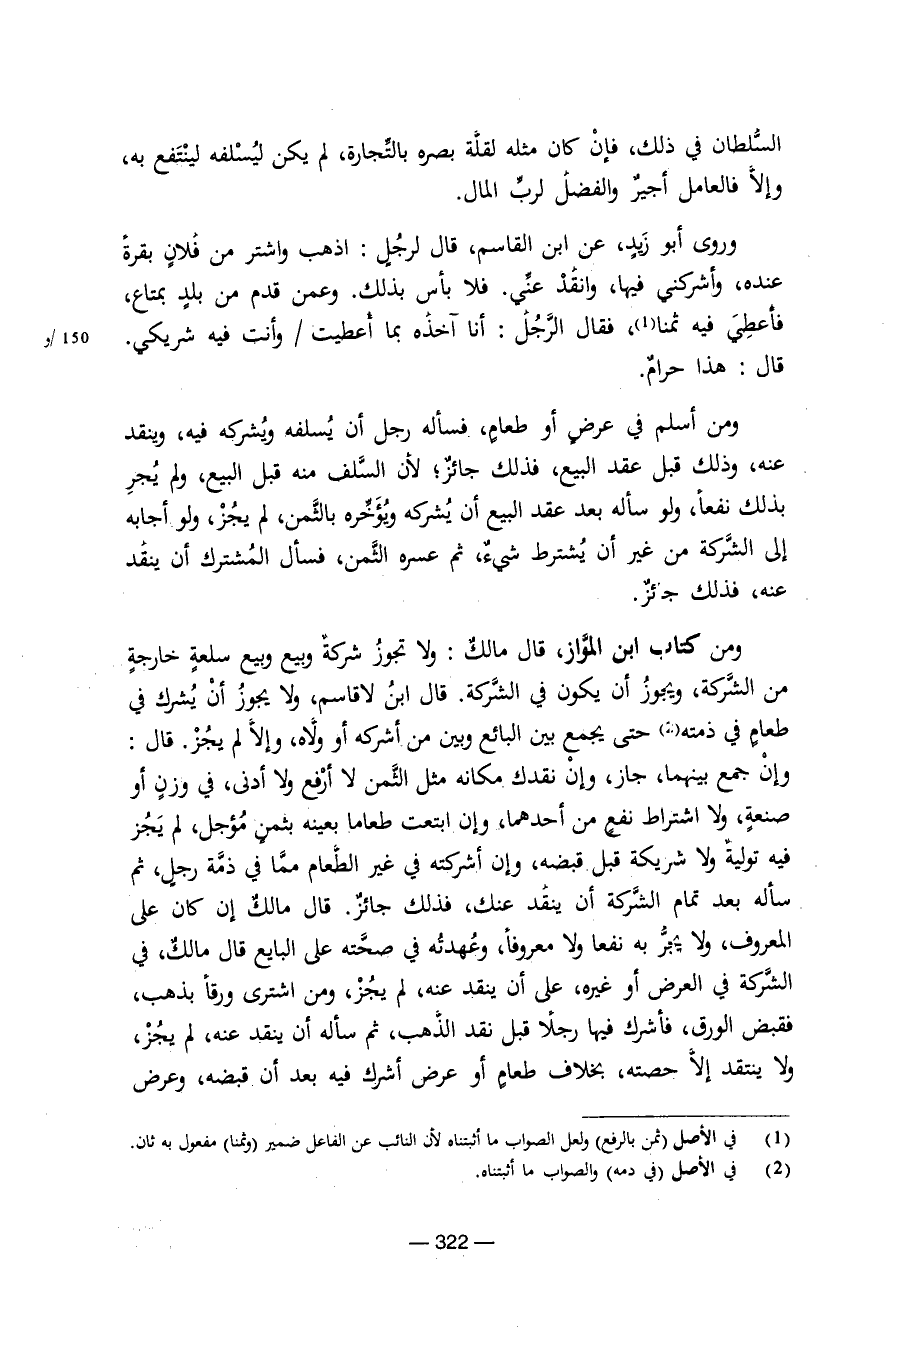 السُّلطان في ذلك، فإنْ كان مثله لقلَّة بصره بالتِّجارة، لم يكن ليُسْلفه لينْتَفع به،
وإلاَّ فالعامل أجيرٌ والفضلُ لربِّ المال.
وروى أبو زَيدٍ، عن ابن القاسم، قال لرجُلٍ : اذهب واشتر من فُلانٍ بقرةً
عنده، وأشركني فيها، وانقُدْ عنِّي. فلا بأس بذلك. وعمن قدم من بلدٍ بمتاع،
فأُعطِيَ فيه ثمنا(1)، فقال الرَّجُلُ : أنا آخذُه بما أُعطيت / وأنت فيه شريكي. 150 /و
قال : هذا حرامٌ.
ومن أسلم في عرضٍ أو طعامٍ، فسأله رجل أن يُسلفه ويُشركه فيه، وينقد
عنه، وذلك قبل عقد البيع، فذلك جائزٌ؛ لأن السَّلف منه قبل البيع، ولم يُجرِ
بذلك نفعاً، ولو سأله بعد عقد البيع أن يُشركه ويُؤَخِّره بالثَّمن، لم يجُزْ، ولو أجابه
إلى الشَّركة من غير أن يُشترط شيءٌ، ثم عسره الثَّمن، فسأل المُشترك أن ينقُد
عنه، فذلك جائزٌ.
ومن كتاب ابن الموَّاز، قال مالكٌ : ولا تجوزُ شركةٌ وبيع وبيع سلعةٍ خارجةٍ
من الشَّركة، ويجوزُ أن يكون في الشَّركة. قال ابنُ لاقاسم، ولا يجوزُ أنْ يُشرك في
طعامٍ في ذمته(2) حتى يجمع بين البائع وبين من أشركه أو ولَّاه، وإلاَّ لم يجُزْ. قال :
وإنْ جمع بينهما، جاز، وإنْ نقدك مكانه مثل الثَّمن لا أرْفع ولا أدنى، في وزنٍ أو
صنعةٍ، ولا اشتراط نفعٍ من أحدهما، وإن ابتعت طعاما بعينه بثمنٍ مُؤجل، لم يَجُز
فيه توليةٌ ولا شريكة قبل قبضه، وإن أشركته في غير الطَّعام ممَّا في ذمَّة رجلٍ، ثم
سأله بعد تمام الشَّركة أن ينقُد عنك، فذلك جائزٌ. قال مالكٌ إن كان على
المعروف، ولا يجرُّ به نفعا ولا معروفاً، وعُهدتُه في صحَّته على البايع قال مالكٌ، في
الشَّركة في العرض أو غيره، على أن ينقد عنه، لم يجُزْ، ومن اشترى ورقاً بذهب،
فقبض الورق، فأشرك فيها رجلًا قبل نقد الذَّهب، ثم سأله أن ينقد عنه، لم يجُزْ،
ولا ينتقد إلاَّ حصته، بخلاف طعامٍ أو عرض أشرك فيه بعد أن قبضه، وعرض
(1) في الأصل (ثمن بالرفع) ولعل الصواب ما أثبتناه لأن النائب عن الفاعل ضمير (وثمنا) مفعول به ثان.
(2) في الأصل (في دمه) والصواب ما أثبتناه.
— 322 —